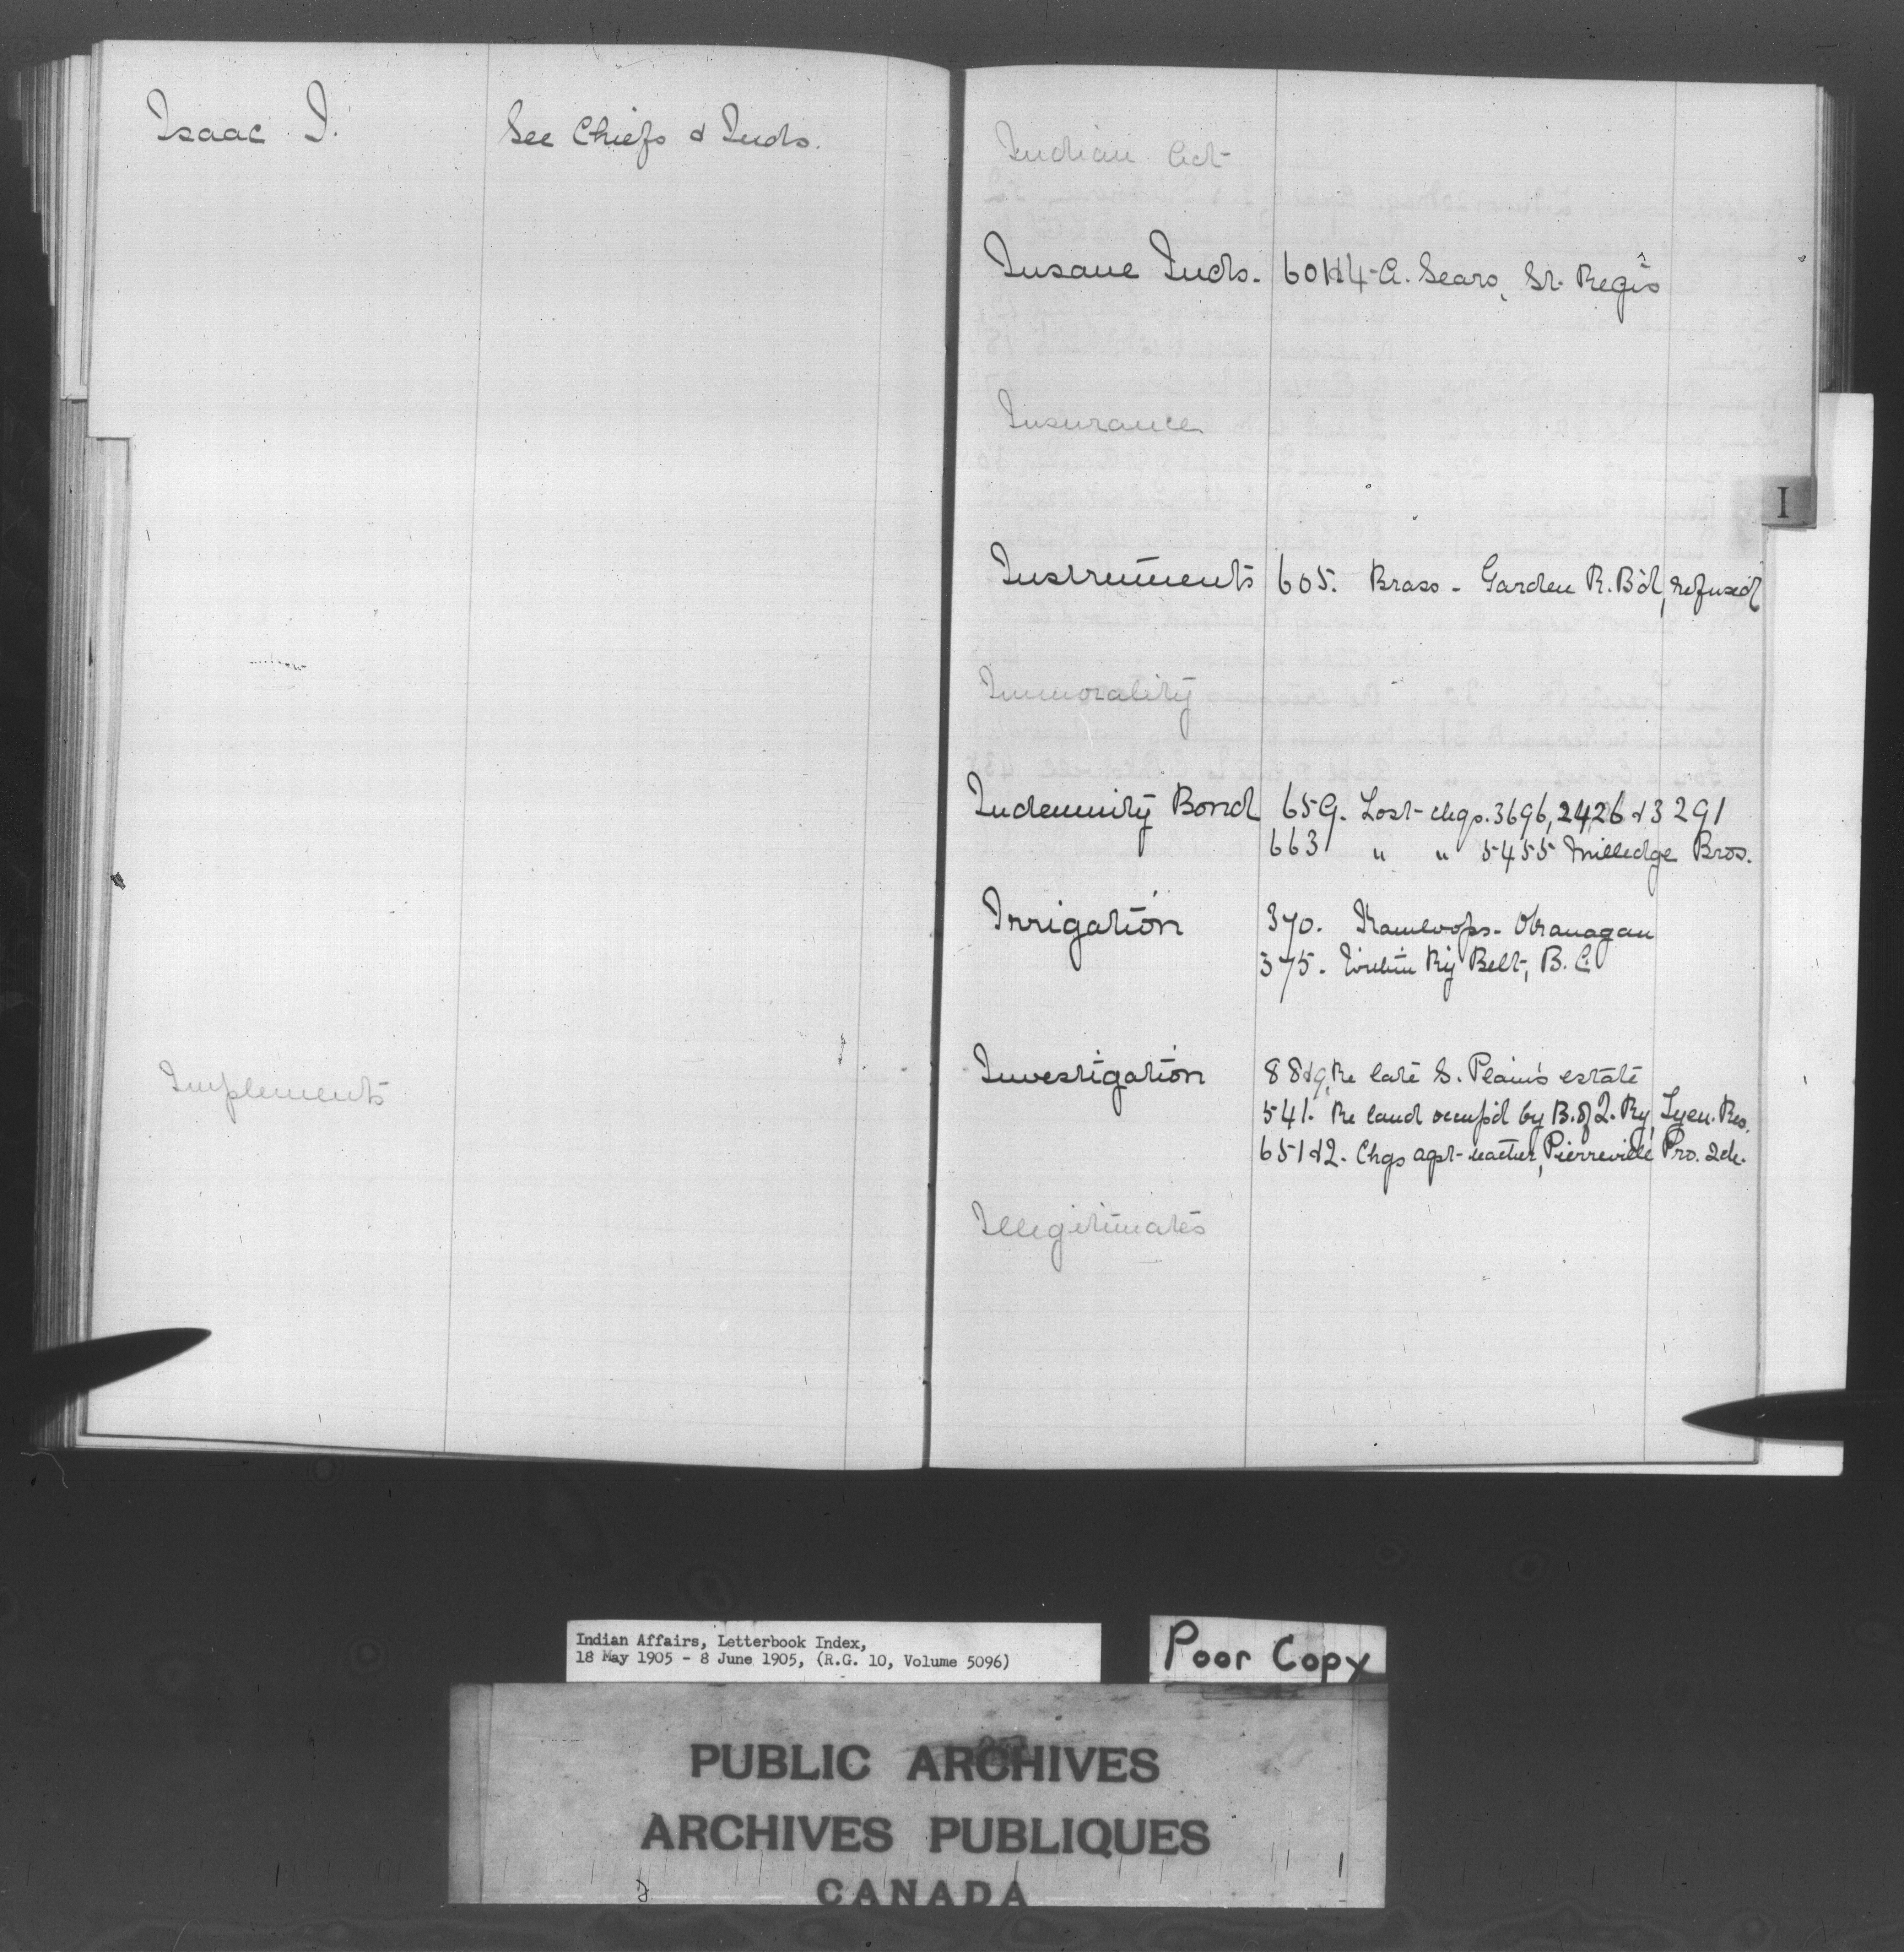 Isaac I. See Chiefs & Inds.
Implements
Indian Act
Insane Inds. 601&4 - A. Sears, St. Regis
Insurance
I
Instruments 605. Brass - Garden R. B'd, refused
Immorality
Indemnity Bond 659. Lost chqs. 3696, 2426 & 3291
663 " " 5455 Milledge Bros.
Irrigation 370. Kamloops - Okanagan
375. Within Ry Belt, B.C.
Investigation 88&9, Re late S. Plain's estate
541. Re land occup'd by B. of Q. Ry, Tyen. Res.
651&2. Chgs agst teacher, Pierreville Pro. Sch.
Illegitimates
Indian Affairs, Letterbook Index,
18 May 1905 - 8 June 1905, (R.G. 10, Volume 5096)
Poor Copy
PUBLIC ARCHIVES
ARCHIVES PUBLIQUES
CANADA